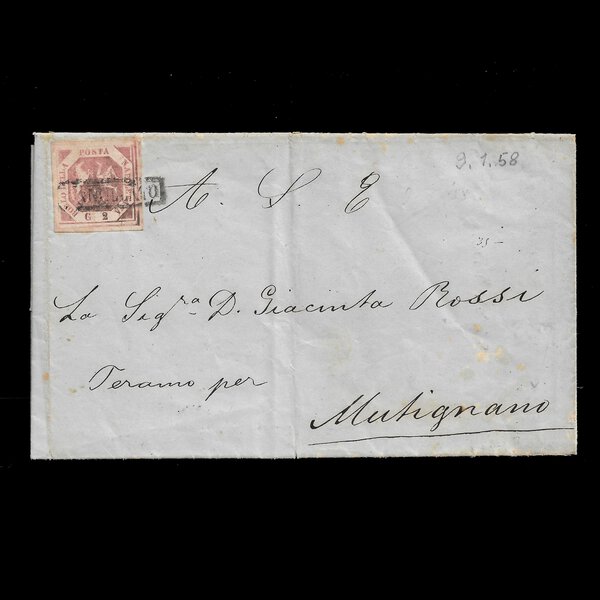 9.1.58
POSTA
G 2
A. S. E
35-
La Sigra D. Giacinta Rossi
Teramo per
Mutignano